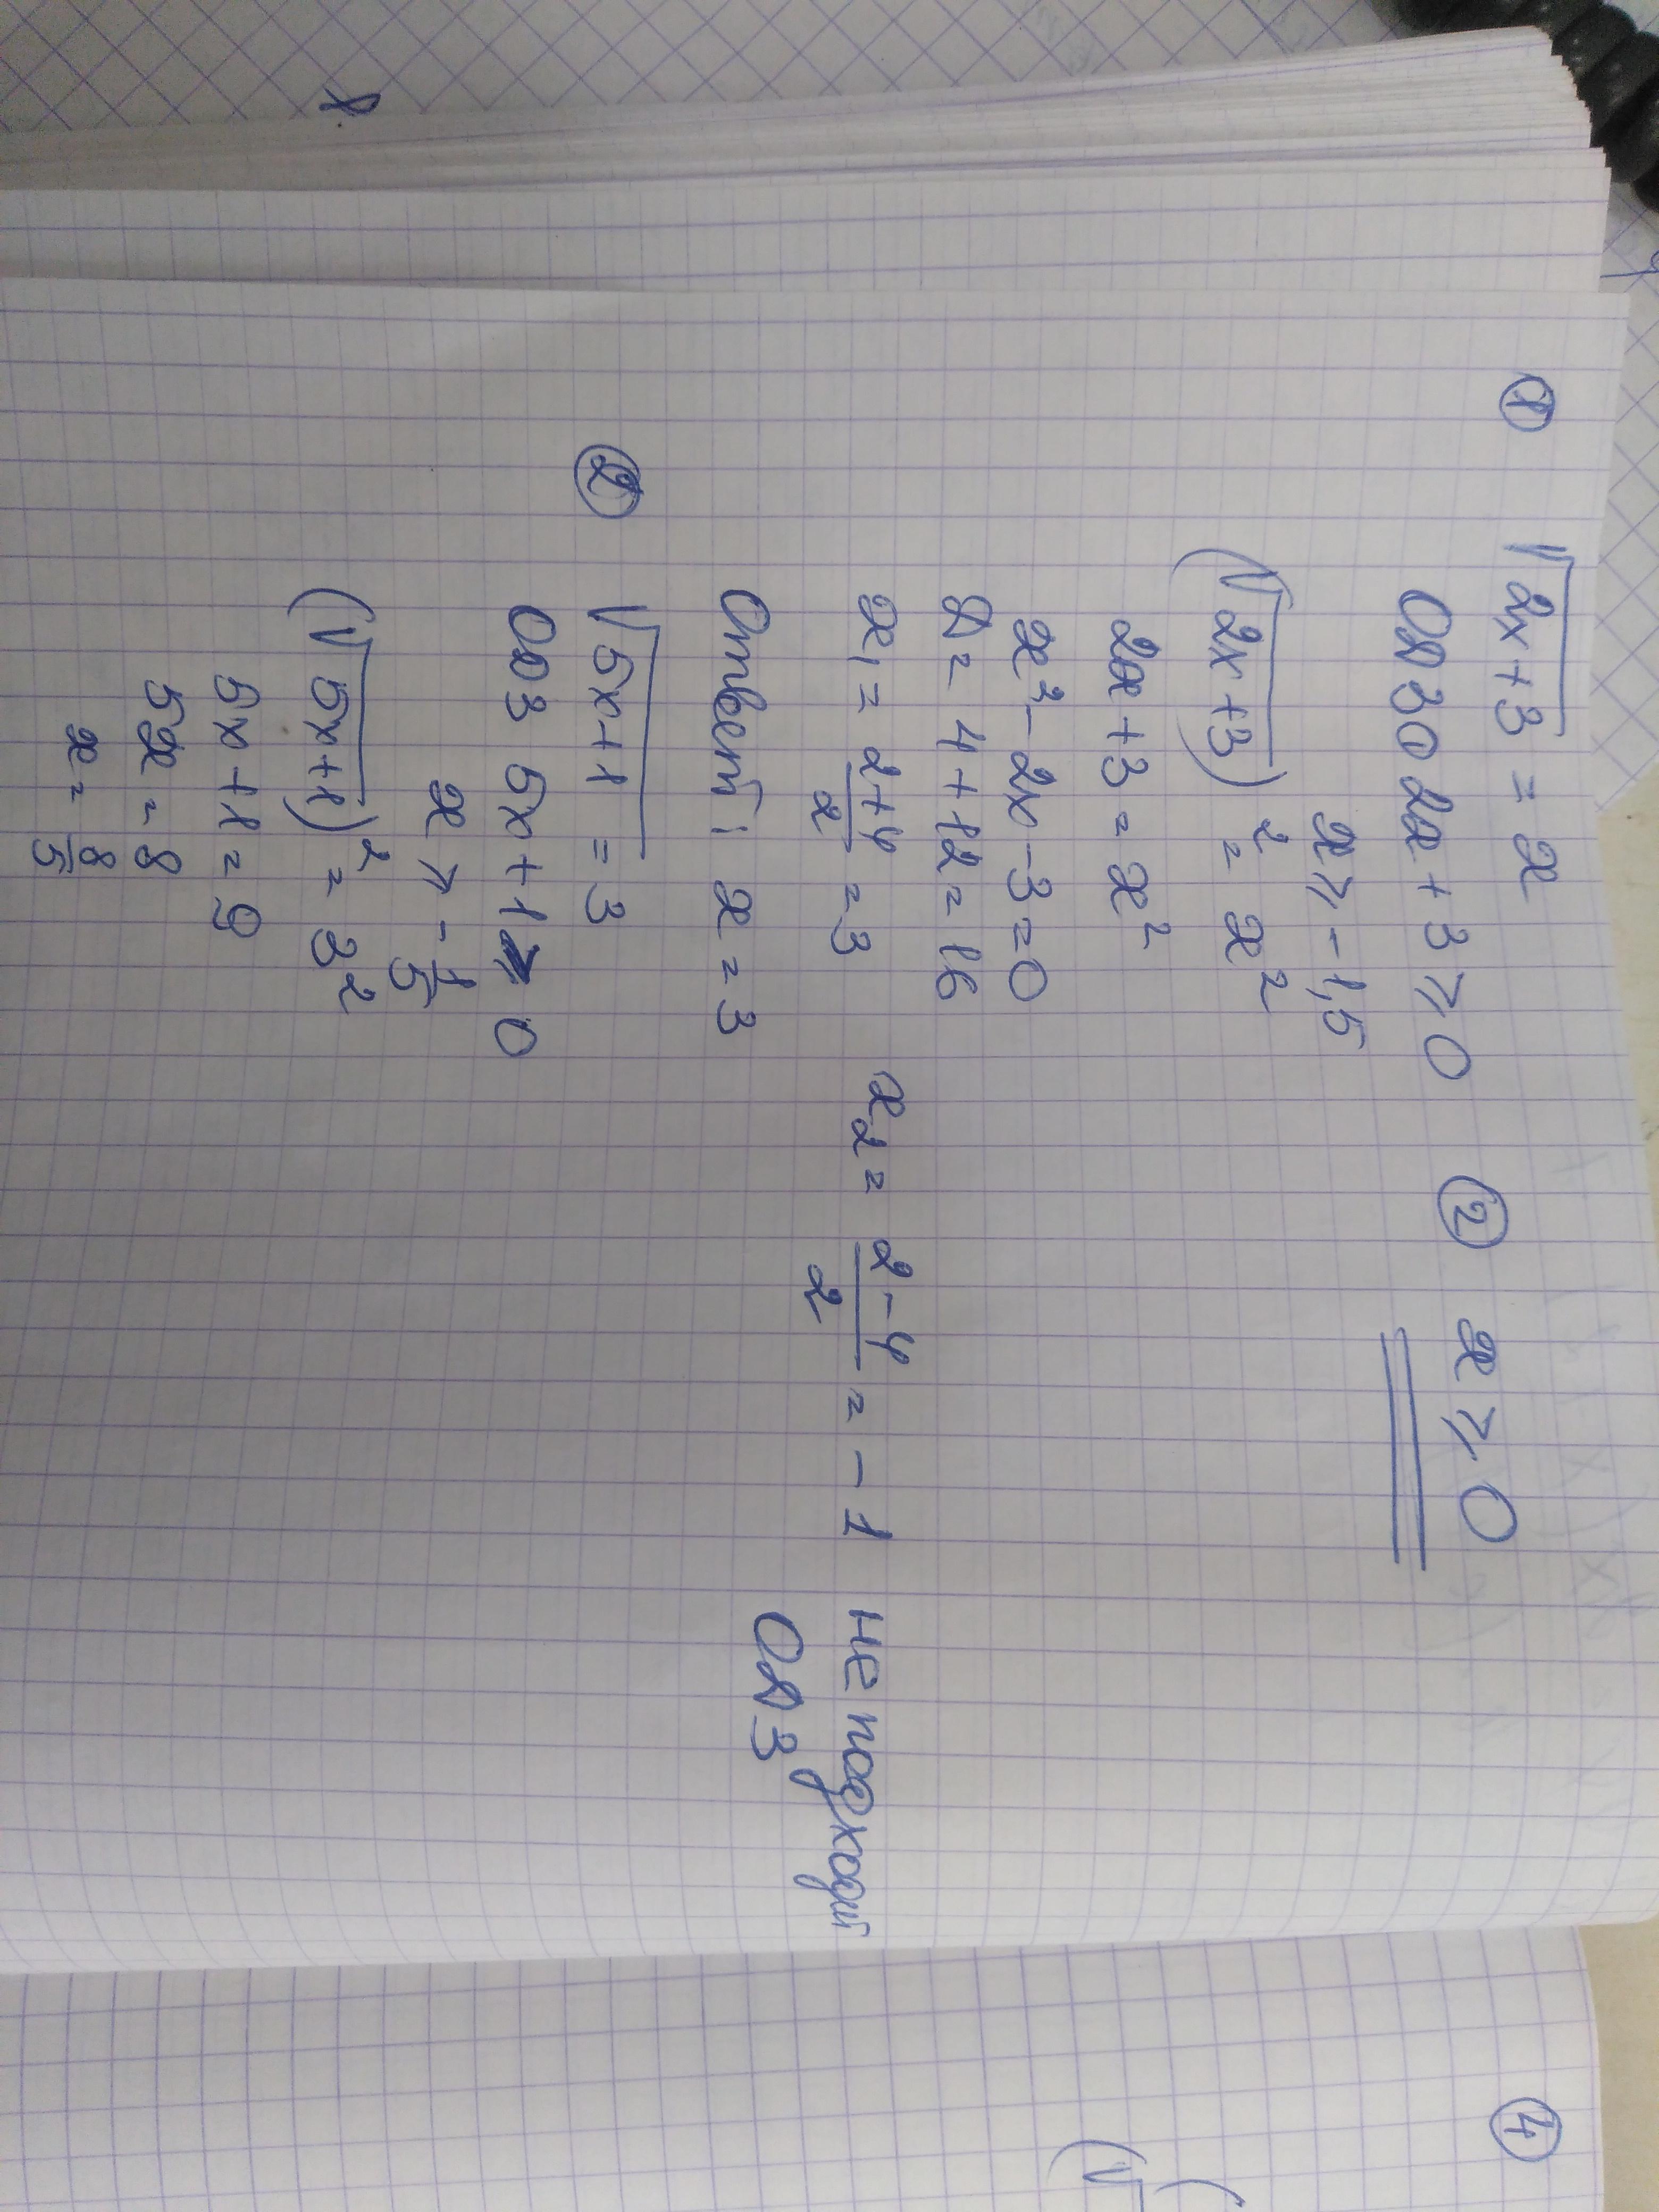 ① √2x+3 = x
ОДЗ① 2x+3 ⩾ 0 ② x ⩾ 0
x ⩾ -1,5
(√2x+3)² = x²
2x+3 = x²
x²-2x-3=0
D = 4+12=16
x₁ = (2+4)/2 = 3 x₂ = (2-4)/2 = -1 не подходит
ОДЗ
Ответ: x = 3
② √5x+1 = 3
ОДЗ 5x+1 ⩾ 0
x ⩾ -1/5
(√5x+1)² = 3²
5x+1 = 9
5x = 8
x = 8/5
④
(√